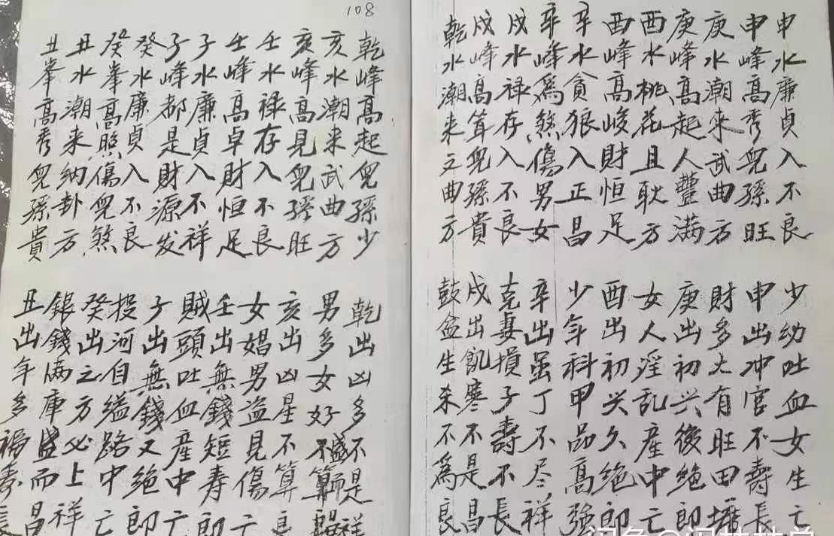 申水廉貞入不良
少幼吐血女生亡
申峰高秀兒孫旺
申出冲官不壽長
庚水潮來武曲方
財多大有旺田塘
庚峰高起人豐满
庚出初兴後绝郎
酉水桃花且耿方
女人淫乱産中亡
酉峰高峻財恒足
酉出初兴久绝郎
辛水貪狼入正昌
少年科甲品高強
辛峰為煞傷男女
辛出虽丁不尽祥
戌水禄存入不良
克妻損子壽不長
戌峰高耸兒孫貴
戌出飢寒不是昌
乾水潮来文曲方
鼓盆生杀不為良
108
乾峰高起兒孫少
乾出凶多不是祥
亥水潮来武曲方
男多女好不
亥峰高見兒孫旺
亥出凶星不算良
壬水禄存入不良
女娼男盗見傷亡
壬峰高卓財恒足
壬出無錢短寿郎
子水廉貞入不祥
賊頭吐血産中亡
子峰都是財源发
子出無錢又绝郎
癸水廉貞入不良
投河自缢路中亡
癸峯高照傷兒煞
癸出之方必上祥
丑水潮来纳卦方
銀錢满庫盛而昌
丑峯高秀兒孫貴
丑出年多福寿長